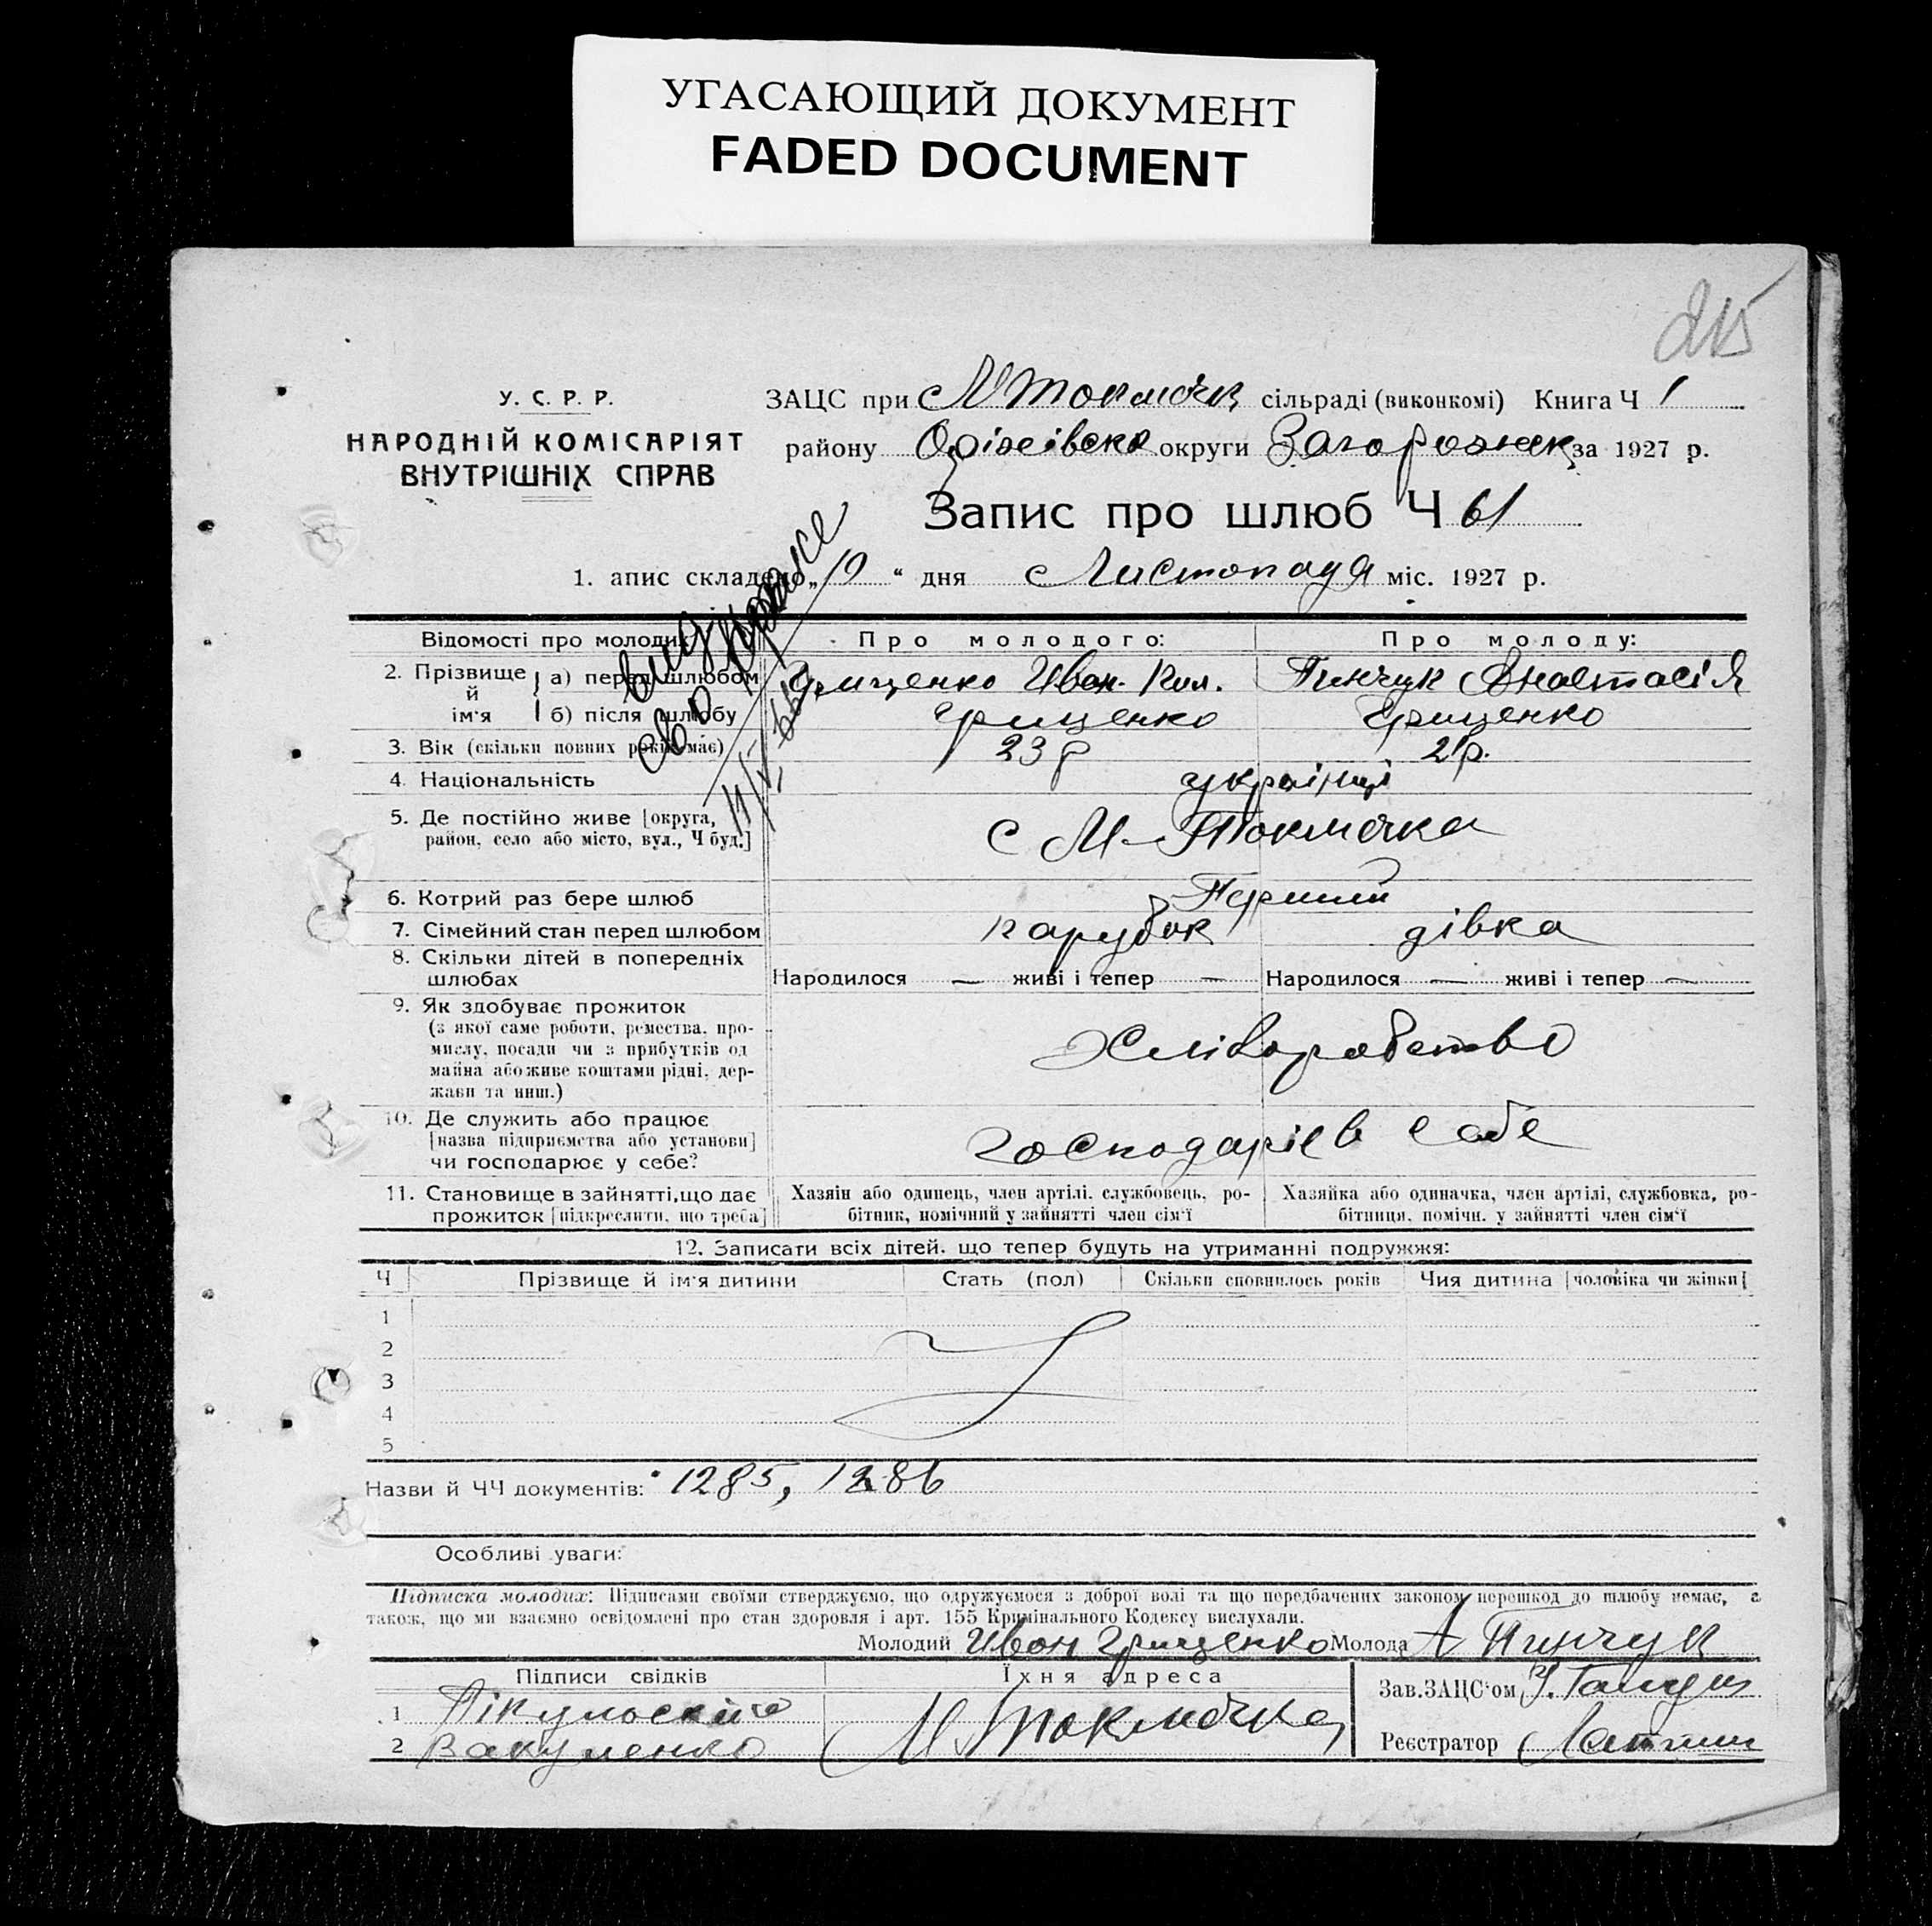 УГАСАЮЩИЙ ДОКУМЕНТ
FADED DOCUMENT
215
У. С. Р. Р.
НАРОДНІЙ КОМІСАРІЯТ
ВНУТРІШНІХ СПРАВ
ЗАЦС при М Токмачк сільраді (виконкомі) Книга Ч 1
району Оріхівсько округи Запорожж за 1927 р.
Запис про шлюб Ч 61
1. апис складено „19 “ дня Листопада міс. 1927 р.
Відомості про молодих Про молодого: Про молоду:
2. Прізвище й ім'я а) перед шлюбом Грищенко Иван Кол. Пинчук Анастасія
б) після шлюбу Грищенко Грищенко
3. Вік (скільки повних років має) 23 р 21р.
4. Національність українці
5. Де постійно живе [округа, район, село або місто, вул., Ч буд.] с М-Токмачка
6. Котрий раз бере шлюб Перший
7. Сімейний стан перед шлюбом парубок дівка
8. Скільки дітей в попередніх шлюбах Народилося — живі і тепер — Народилося — живі і тепер —
9. Як здобуває прожиток
(з якої саме роботи, ремества, про-
мислу, посади чи з прибутків од
майна або живе коштами рідні, дер-
жави та инш.) Хліборобство
10. Де служить або працює
[назва підприємства або установи]
чи господарює у себе? господарів в себе
11. Становище в зайнятті, що дає прожиток [підкреслити, що треба]
Хазяін або одинець, член артілі, службовець, ро-
бітник, помічний у зайнятті член сім'ї
Хазяйка або одиначка, член артілі, службовка, ро-
бітниця, помічн. у зайнятті член сім'ї
12. Записати всіх дітей, що тепер будуть на утриманні подружжя:
Ч Прізвище й ім'я дитини Стать (пол) Скільки сповнилось років Чия дитина [чоловіка чи жінки[
1
2
3
4
5
Назви й ЧЧ документів: 1285, 1286
Особливі уваги:
Підписка молодих: Підписами своїми стверджуємо, що одружуємося з доброї волі та що передбачених законом перешкод до шлюбу немає, а
також, що ми взаємно освідомлені про стан здоровля і арт. 155 Кримінального Кодексу вислухали.
Молодий Иван Грищенко Молода А Пинчук
Підписи свідків Їхня адреса
1 Пікульский
2 Вакуленко М Токмачка
Зав. ЗАЦС'ом
Реєстратор